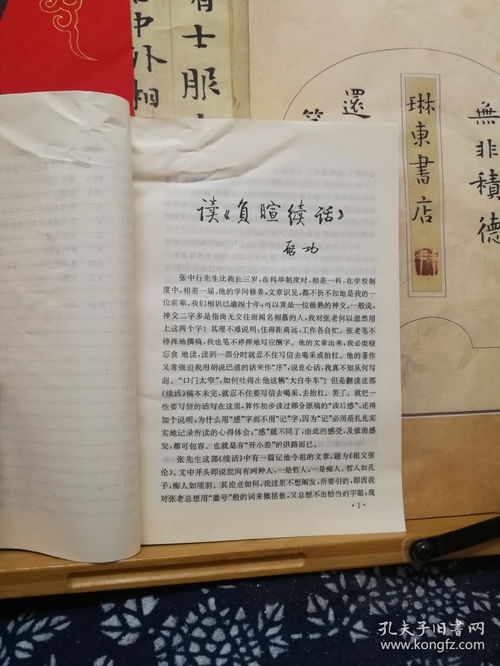 有士服
中外相
還
無非積德
琳東書店
读《负暄续话》
启功
张中行先生比我长三岁，在科举制度时，相差一科，在学校制
度中，相差一届，他的学问修养，文章识见，都不折不扣地是我的一
位前辈。我们相识已逾四十年，可以算是一位极熟的神交。一般说，
神交二字多是指尚无交往而闻名相慕的人，我对张老何以忽然用
上这两个字？其理不难说明：住得距离远，工作各自忙。张老笔不
停挥地撰稿，我也笔不停挥地写应酬字。他的文章出来，我必废寝
忘食地读，读到一部分时就忍不住写信去喝采或抬杠。他的著作
又常强迫我用胡说巴道的话来作“序”，说良心话，我真不知从何写
起。“口门太窄”，如何吐得出他这辆“大白牛车”？但是翻读这部
《续话》稿本未完，就忍不住要写信去喝采、去抬杠。罢了，就把一
些要写信的话写在这里，算作初步读过部分原稿的“读后感”。还得
加个说明，为什么用“感”字而不用“记”字，因为“记”必须是扎扎实
实地记录所读的心得体会，“感”就不同了，由此的感受，及彼的感
发，都可包容。也就是有“开小差”的退路而已。
张先生这部《续话》中有一篇记他令祖的文章，题为《祖父张
伦》。文中开头即说世间有两种人，一是哲人，一是痴人。哲人如孔
子，痴人如项羽。其论点如何，我这里不想阐发，所要引的，即因我
对张老总想用“徽号”般的词来概括他，又总想不出恰当的字眼，现
·1·
孔夫子旧书网
www.kongfz.com